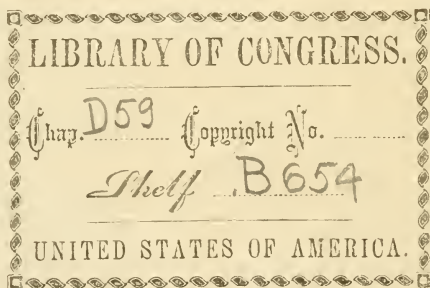 LIBRARY OF CONGRESS.
Chap. D59 Copyright No.
Shelf .B654
UNITED STATES OF AMERICA.